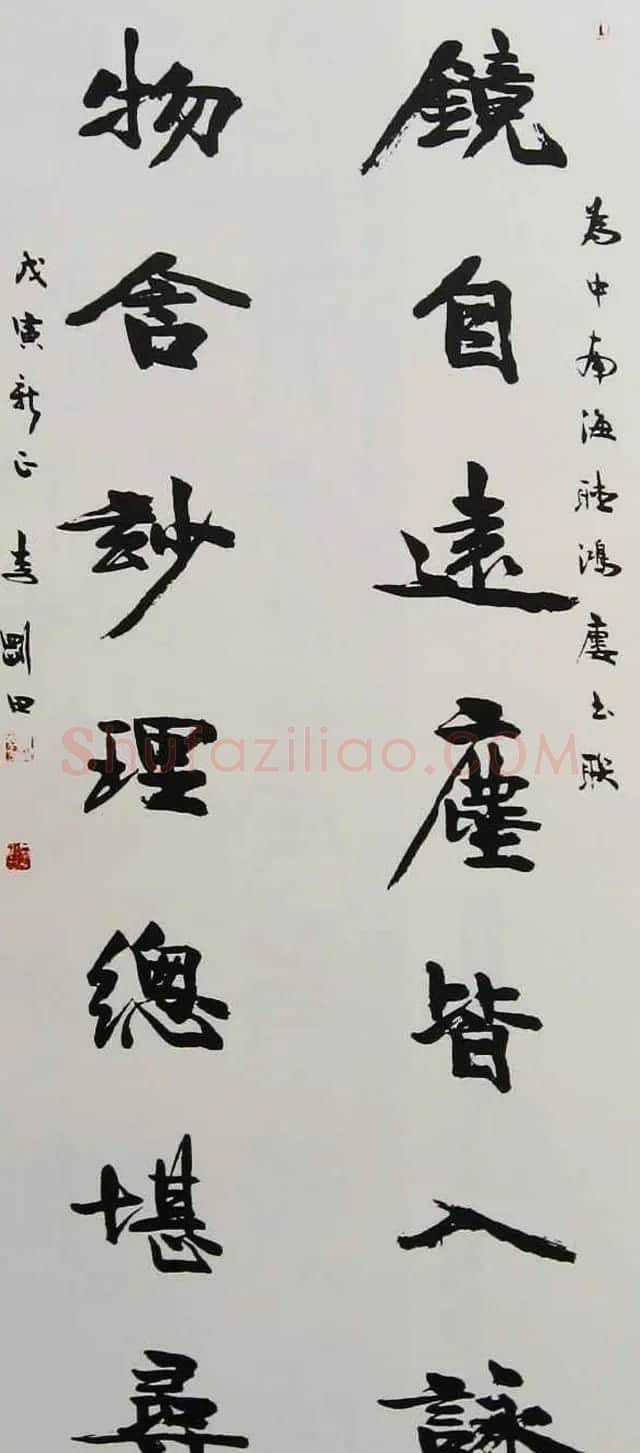 為中南海聽鴻廔书联
鏡自遠塵皆入詠
物含玅理總堪尋
戊寅新正 李剛田
Shufaziliao.COM